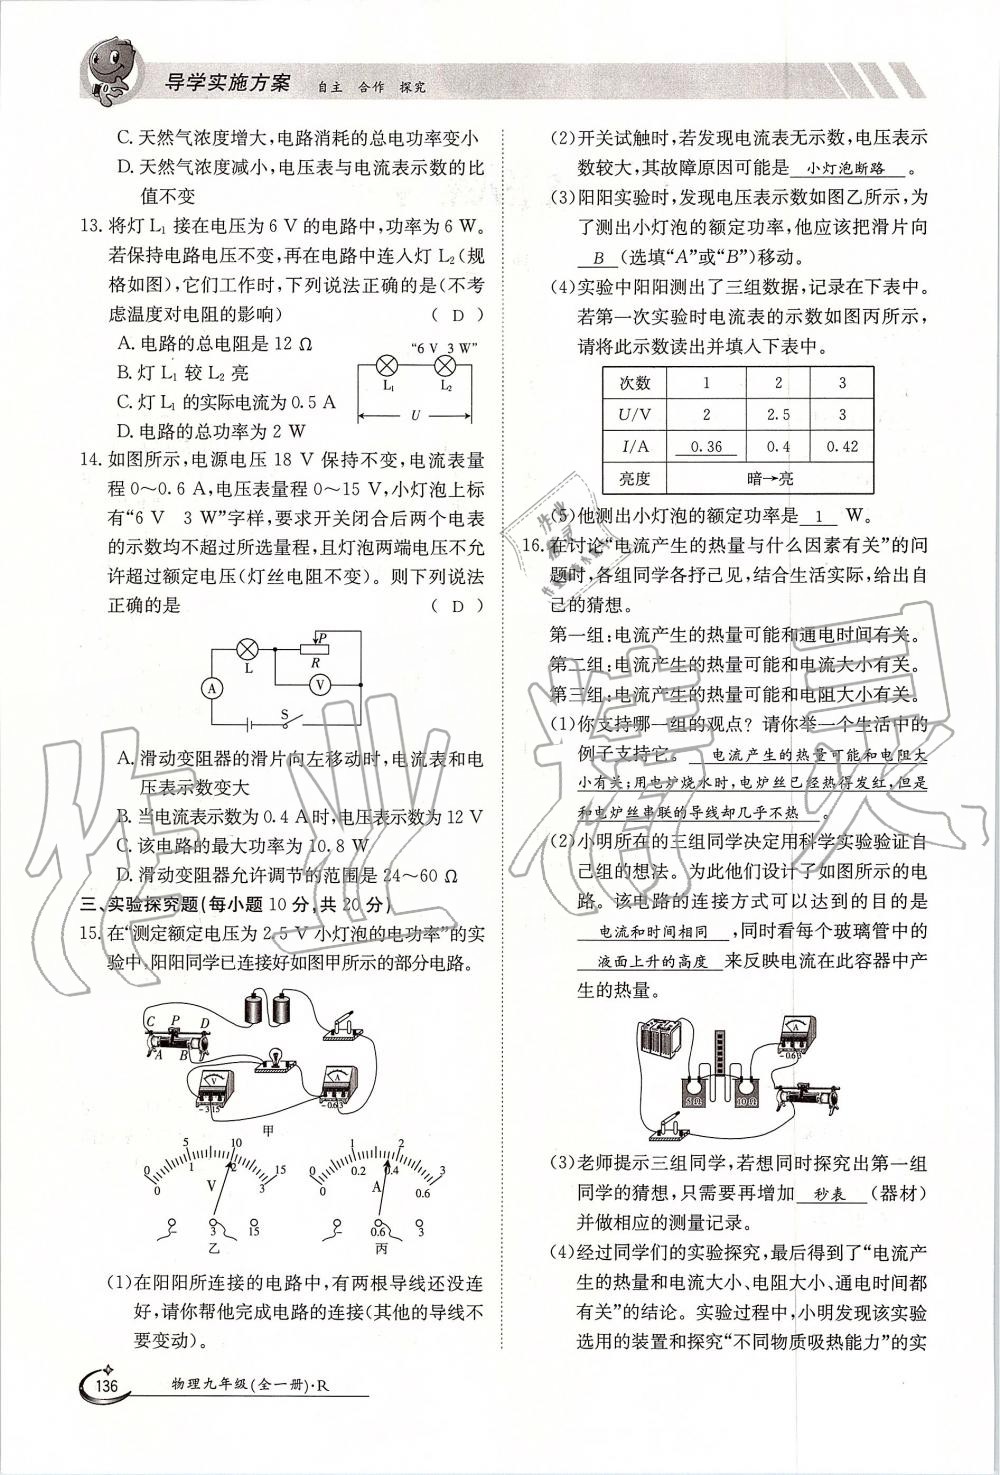 导学实施方案 自主 合作 探究
C. 天然气浓度增大,电路消耗的总电功率变小
D. 天然气浓度减小,电压表与电流表示数的比
值不变
13. 将灯 L₁ 接在电压为 6 V 的电路中,功率为 6 W。
若保持电路电压不变,再在电路中连入灯 L₂(规
格如图),它们工作时,下列说法正确的是(不考
虑温度对电阻的影响) ( D )
A. 电路的总电阻是 12 Ω
B. 灯 L₁ 较 L₂ 亮
C. 灯 L₁ 的实际电流为 0.5 A
D. 电路的总功率为 2 W
“6 V 3 W”
L₁ L₂
U
14. 如图所示,电源电压 18 V 保持不变,电流表量
程 0～0.6 A,电压表量程 0～15 V,小灯泡上标
有“6 V 3 W”字样,要求开关闭合后两个电表
的示数均不超过所选量程,且灯泡两端电压不允
许超过额定电压(灯丝电阻不变)。则下列说法
正确的是 ( D )
P
L R
A V
S
A. 滑动变阻器的滑片向左移动时,电流表和电
压表示数变大
B. 当电流表示数为 0.4 A 时,电压表示数为 12 V
C. 该电路的最大功率为 10.8 W
D. 滑动变阻器允许调节的范围是 24～60 Ω
三、实验探究题(每小题 10 分,共 20 分)
15. 在“测定额定电压为 2.5 V 小灯泡的电功率”的实
验中,阳阳同学已连接好如图甲所示的部分电路。
C P D
A B
V A
- 3 15 - 0.6 3
甲
5 10
0 1 2 15
0 3
V
- 3 15
乙
1 2
0 0.2 0.4 3
0 0.6
A
- 0.6 3
丙
(1)在阳阳所连接的电路中,有两根导线还没连
好,请你帮他完成电路的连接(其他的导线不
要变动)。
(2)开关试触时,若发现电流表无示数,电压表示
数较大,其故障原因可能是 小灯泡断路 。
(3)阳阳实验时,发现电压表示数如图乙所示,为
了测出小灯泡的额定功率,他应该把滑片向
B (选填“A”或“B”)移动。
(4)实验中阳阳测出了三组数据,记录在下表中。
若第一次实验时电流表的示数如图丙所示,
请将此示数读出并填入下表中。
次数 1 2 3
U/V 2 2.5 3
I/A 0.36 0.4 0.42
亮度 暗→亮
(5)他测出小灯泡的额定功率是 1 W。
16. 在讨论“电流产生的热量与什么因素有关”的问
题时,各组同学各抒己见,结合生活实际,给出自
己的猜想。
第一组:电流产生的热量可能和通电时间有关。
第二组:电流产生的热量可能和电流大小有关。
第三组:电流产生的热量可能和电阻大小有关。
(1)你支持哪一组的观点？请你举一个生活中的
例子支持它。 电流产生的热量可能和电阻大
小有关;用电炉烧水时,电炉丝已经热得发红,但是
和电炉丝串联的导线却几乎不热 。
(2)小明所在的三组同学决定用科学实验验证自
己组的想法。为此他们设计了如图所示的电
路。该电路的连接方式可以达到的目的是
电流和时间相同 ,同时看每个玻璃管中的
液面上升的高度 来反映电流在此容器中产
生的热量。
A
- 0.6 3
5 Ω 10 Ω
(3)老师提示三组同学,若想同时探究出第一组
同学的猜想,只需要再增加 秒表 (器材)
并做相应的测量记录。
(4)经过同学们的实验探究,最后得到了“电流产
生的热量和电流大小、电阻大小、通电时间都
有关”的结论。实验过程中,小明发现该实验
选用的装置和探究“不同物质吸热能力”的实
136 物理九年级(全一册)·R
作业精灵